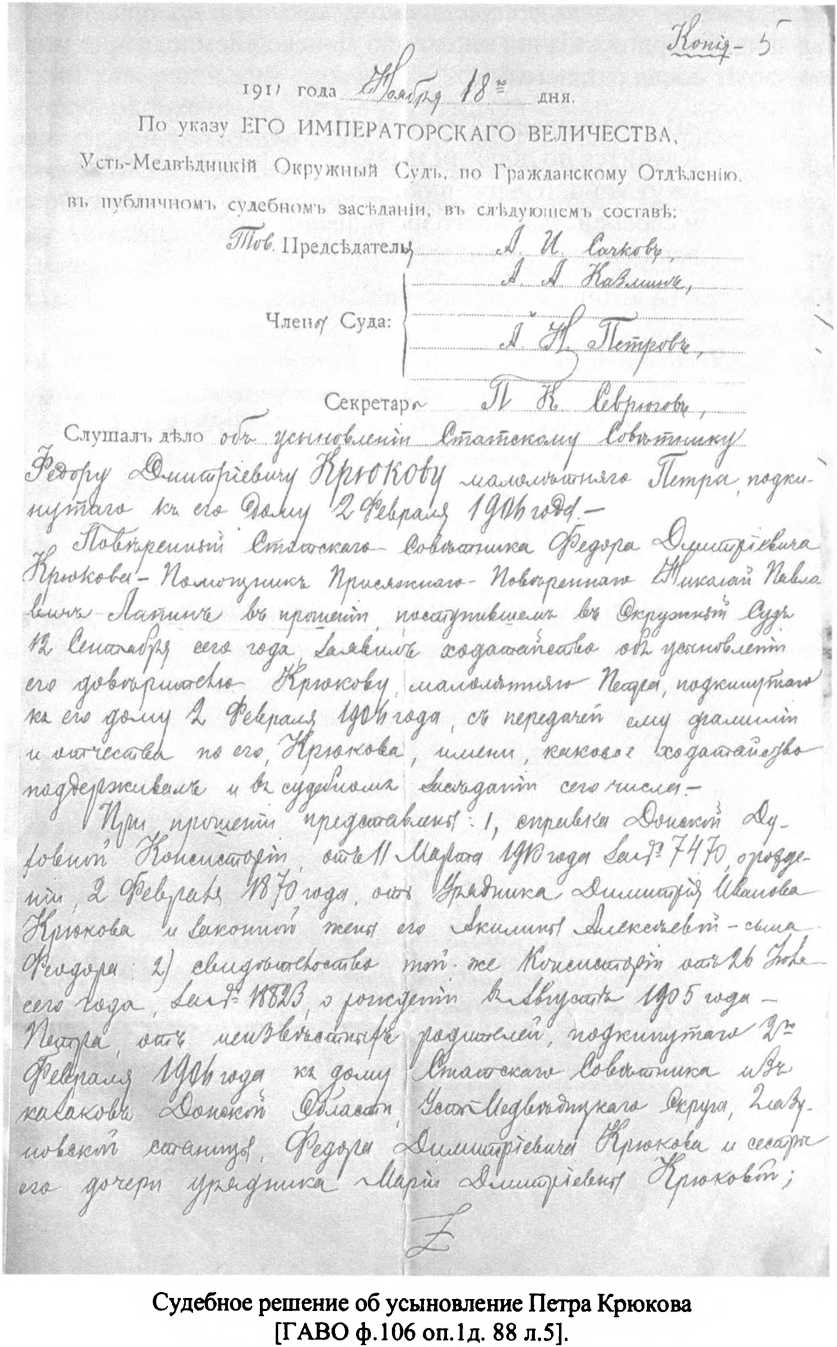 Копія – 5
1911 года Ноября 18го дня.
По указу ЕГО ИМПЕРАТОРСКАГО ВЕЛИЧЕСТВА,
Усть-Медвѣдицкій Окружный Судъ, по Гражданскому Отдѣленію,
въ публичномъ судебномъ засѣданіи, въ слѣдующемъ составѣ:
Тов. Предсѣдателя А. И. Сачковъ,
А. А. Казминъ,
Члены Суда:
А. Н. Петровъ,
Секретарь П. К. Севрюговъ,
Слушалъ дѣло объ усыновленіи Статскому Совѣтнику
Федору Дмитріевичу Крюкову малолѣтняго Петра, подки-
нутаго къ его дому 2 Февраля 1906 года.–
Повѣренный Статскаго Совѣтника Федора Дмитріевича
Крюкова – Помощникъ Присяжнаго Повѣреннаго Николай Павло
вичъ Лапинъ въ прошеніи, поступившемъ въ Окружный Судъ
12 Сентября сего года, заявилъ ходатайство объ усыновленіи
его довѣрителю Крюкову, малолѣтняго Петра, подкинутаго
къ его дому 2 Февраля 1906 года, съ передачей ему фамиліи
и отчества по его, Крюкова, имени, каковое ходатайство
поддерживалъ и въ судебномъ засѣданіи сего числа.–
При прошеніи представлены: 1, справка Донской Ду-
ховной Консисторіи, отъ 11 Марта 1910 года за № 7470, о рожде-
ніи, 2 Февраля 1870 года, отъ Урядника Димитрія Иванова
Крюкова и законной жены его Акилины Алексѣевой – сына
Феодора: 2) свидѣтельство той-же Консисторіи отъ 26
сего года, за № 18823, о рожденіи въ Августѣ 1905 года –
Петра, отъ неизвѣстныхъ родителей, подкинутаго 2го
Февраля 1906 года къ дому Статскаго Совѣтника изъ
казаковъ Донской Области, Усть-Медвѣдицкаго Округа, Глазу-
новской станицы, Федора Димитріевича Крюкова и сестры
его дочери урядника Маріи Дмитріевны Крюковой;
Судебное решение об усыновление Петра Крюкова
[ГАВО ф.106 оп.1д. 88 л.5].